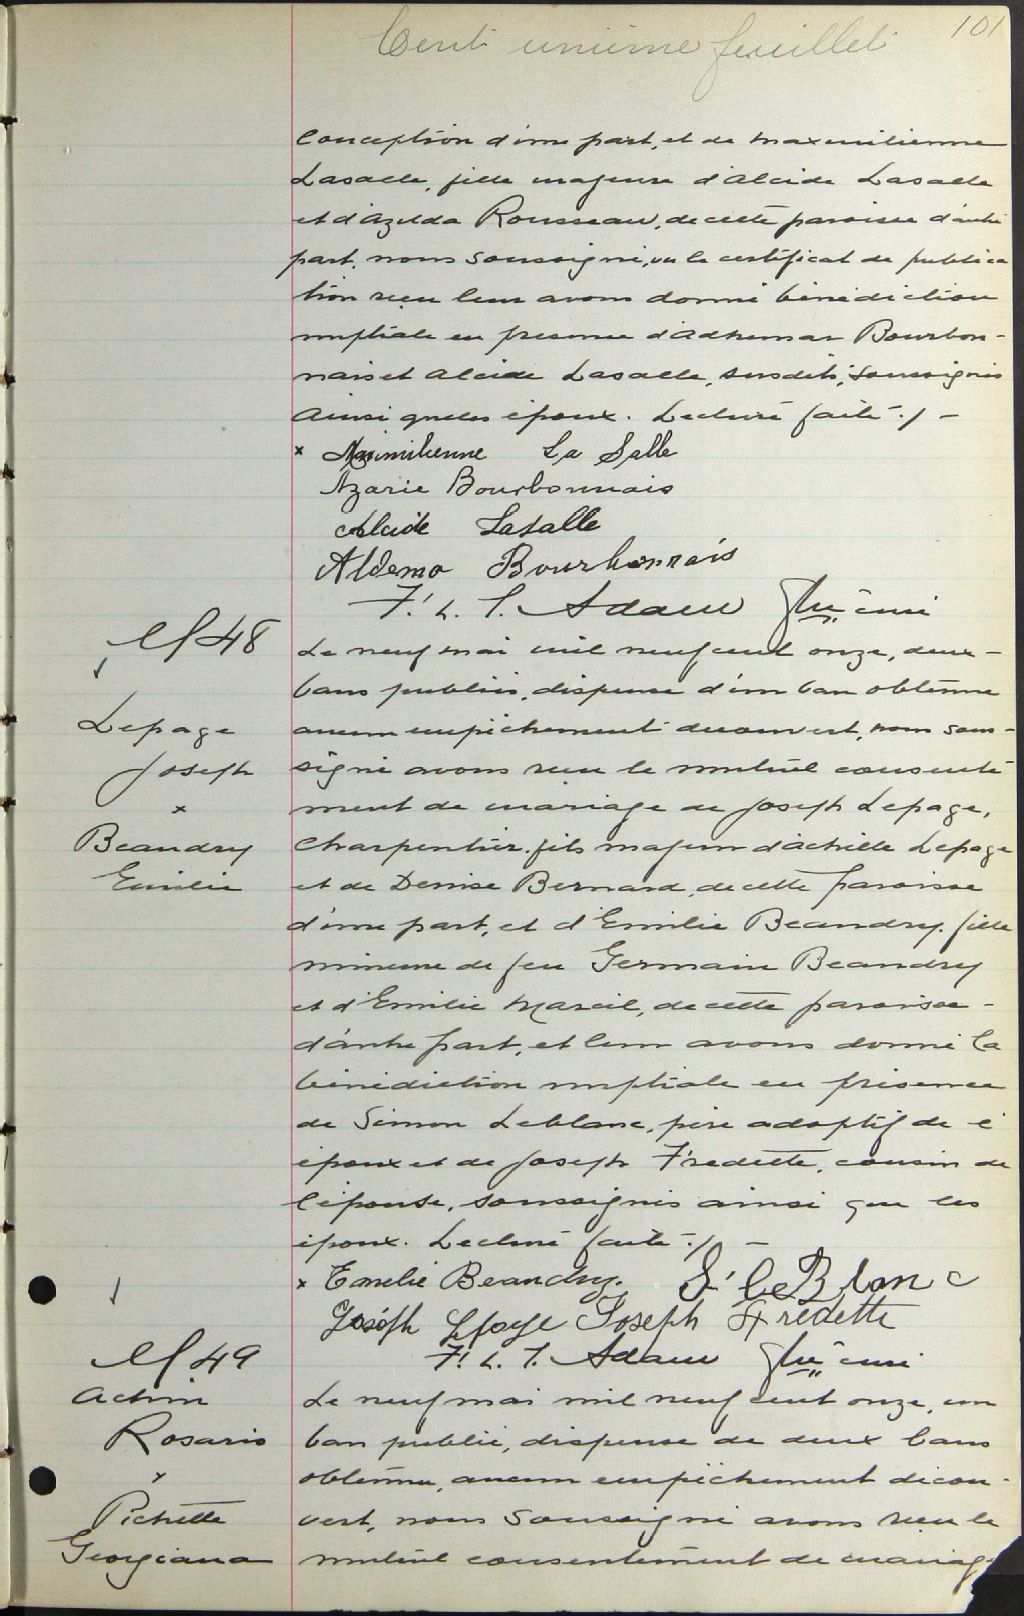 Cent unième feuillet 101
Conception d'une part, et de Maximilienne
Lasalle, fille majeure d'Alcide Lasalle
et d'Azelda Rousseau, de cette paroisse d'autre
part, nous soussigné, vu le certificat de publica
tion reçu leur avons donné bénédiction
nuptiale en présence d'Adhemar Bourbon-
nais et Alcide Lasalle, susdits, soussignés
ainsi que les époux. Lecture faite ./-
x Maximilienne La Salle
Azarie Bourbonnais
Alcide Lasalle
Aldema Bourbonnais
F. L. T. Adam Ptre curé
M 48
Lepage
Joseph
x
Beaudry
Emilie
Le neuf mai mil neuf cent onze, deux-
bans publiés, dispense d'un ban obtenue
aucun empêchement découvert, nous sous-
signé avons reçu le mutuel consente
ment de mariage de Joseph Lepage,
Charpentier, fils majeur d'Achille Lepage
et de Denise Bernard, de cette paroisse
d'une part, et d'Emilie Beaudry, fille
mineure de feu Germain Beaudry
et d'Emilie Marcil, de cette paroisse-
d'autre part, et leur avons donné la
bénédiction nuptiale en présence
de Simon Leblanc, père adoptif de l'
époux et de Joseph Fredette, cousin de
l'épouse, soussignés ainsi que les
époux. Lecture faite ./-
x Emelie Beaudry. S. LeBlanc
Joseph Lepage Joseph Fredette
F. L. T. Adam Ptre curé
M 49
Achin
Rosario
x
Pichette
Georgiana
Le neuf mai mil neuf cent onze, un
ban publié, dispense de deux bans
obtenue, aucun empêchement décou-
vert, nous soussigné avons reçu le
mutuel consentement de mariage